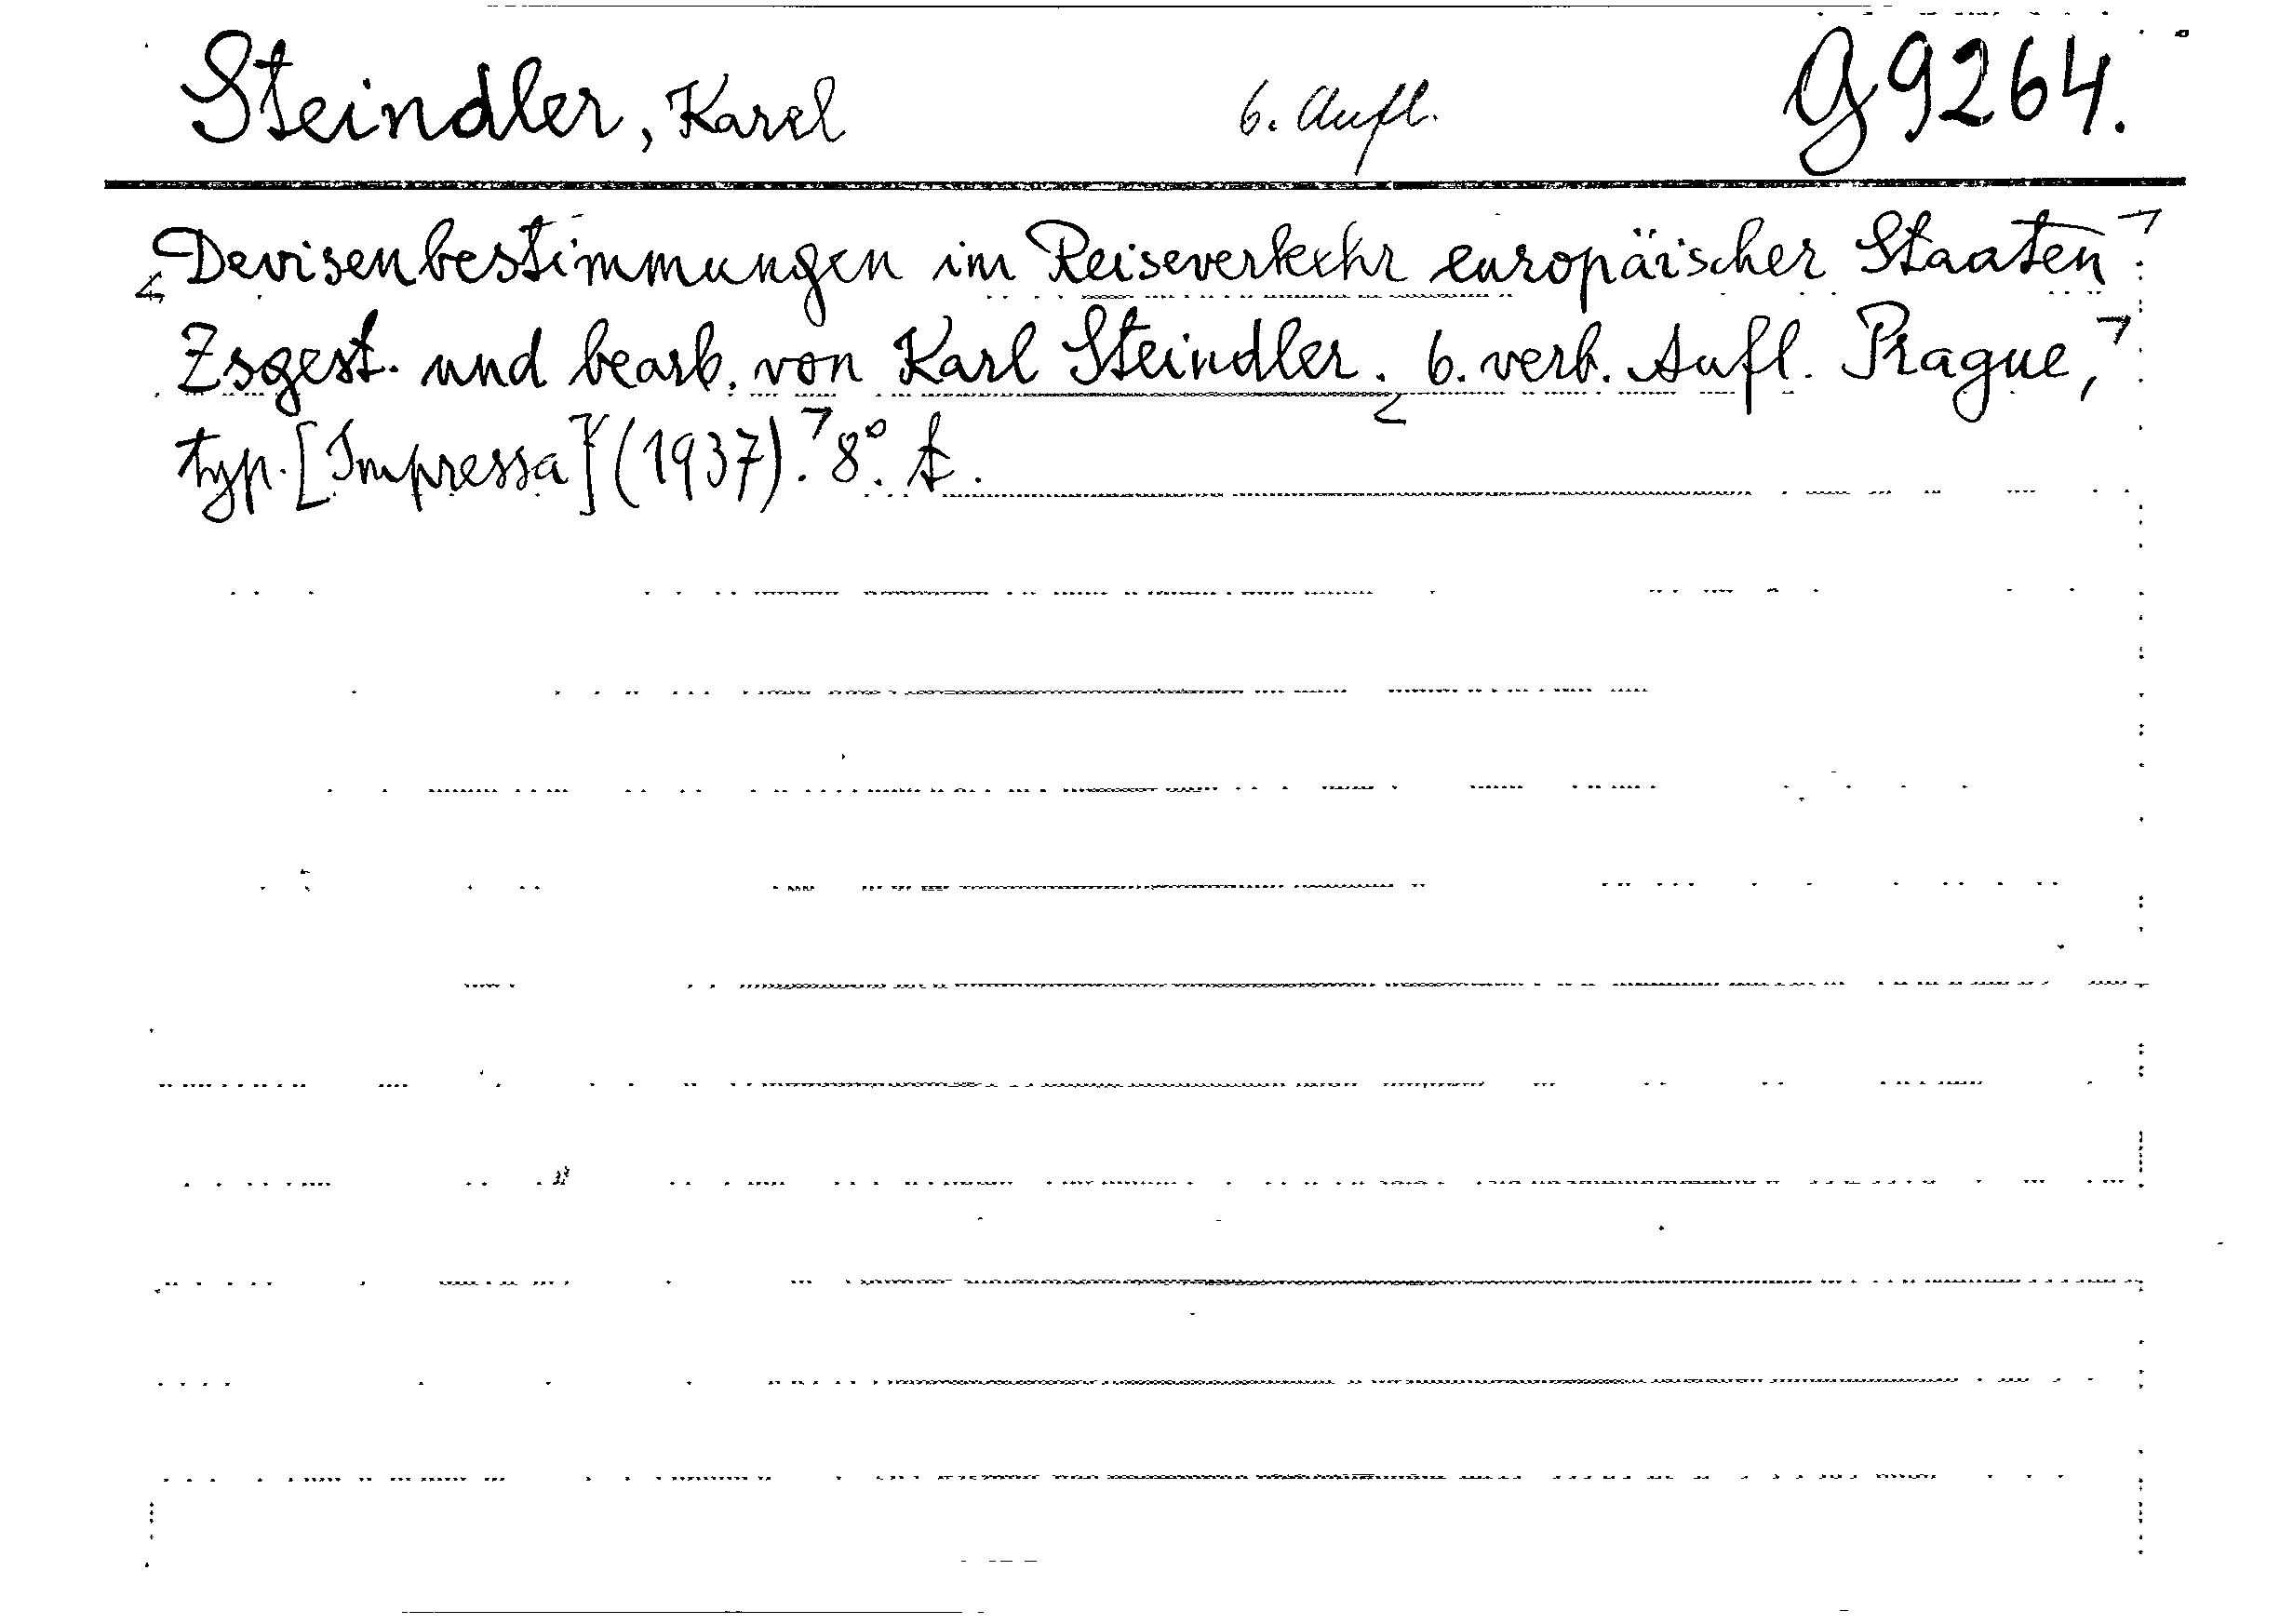 Steindler, Karel 6. Aufl. G 9264.
Devisenbestimmungen im Reiseverkehr europäischer Staaten
Zsgest. und bearb. von Karl Steindler. 6. verb. Aufl. Prague,
typ. [Impressa] (1937). 8°.